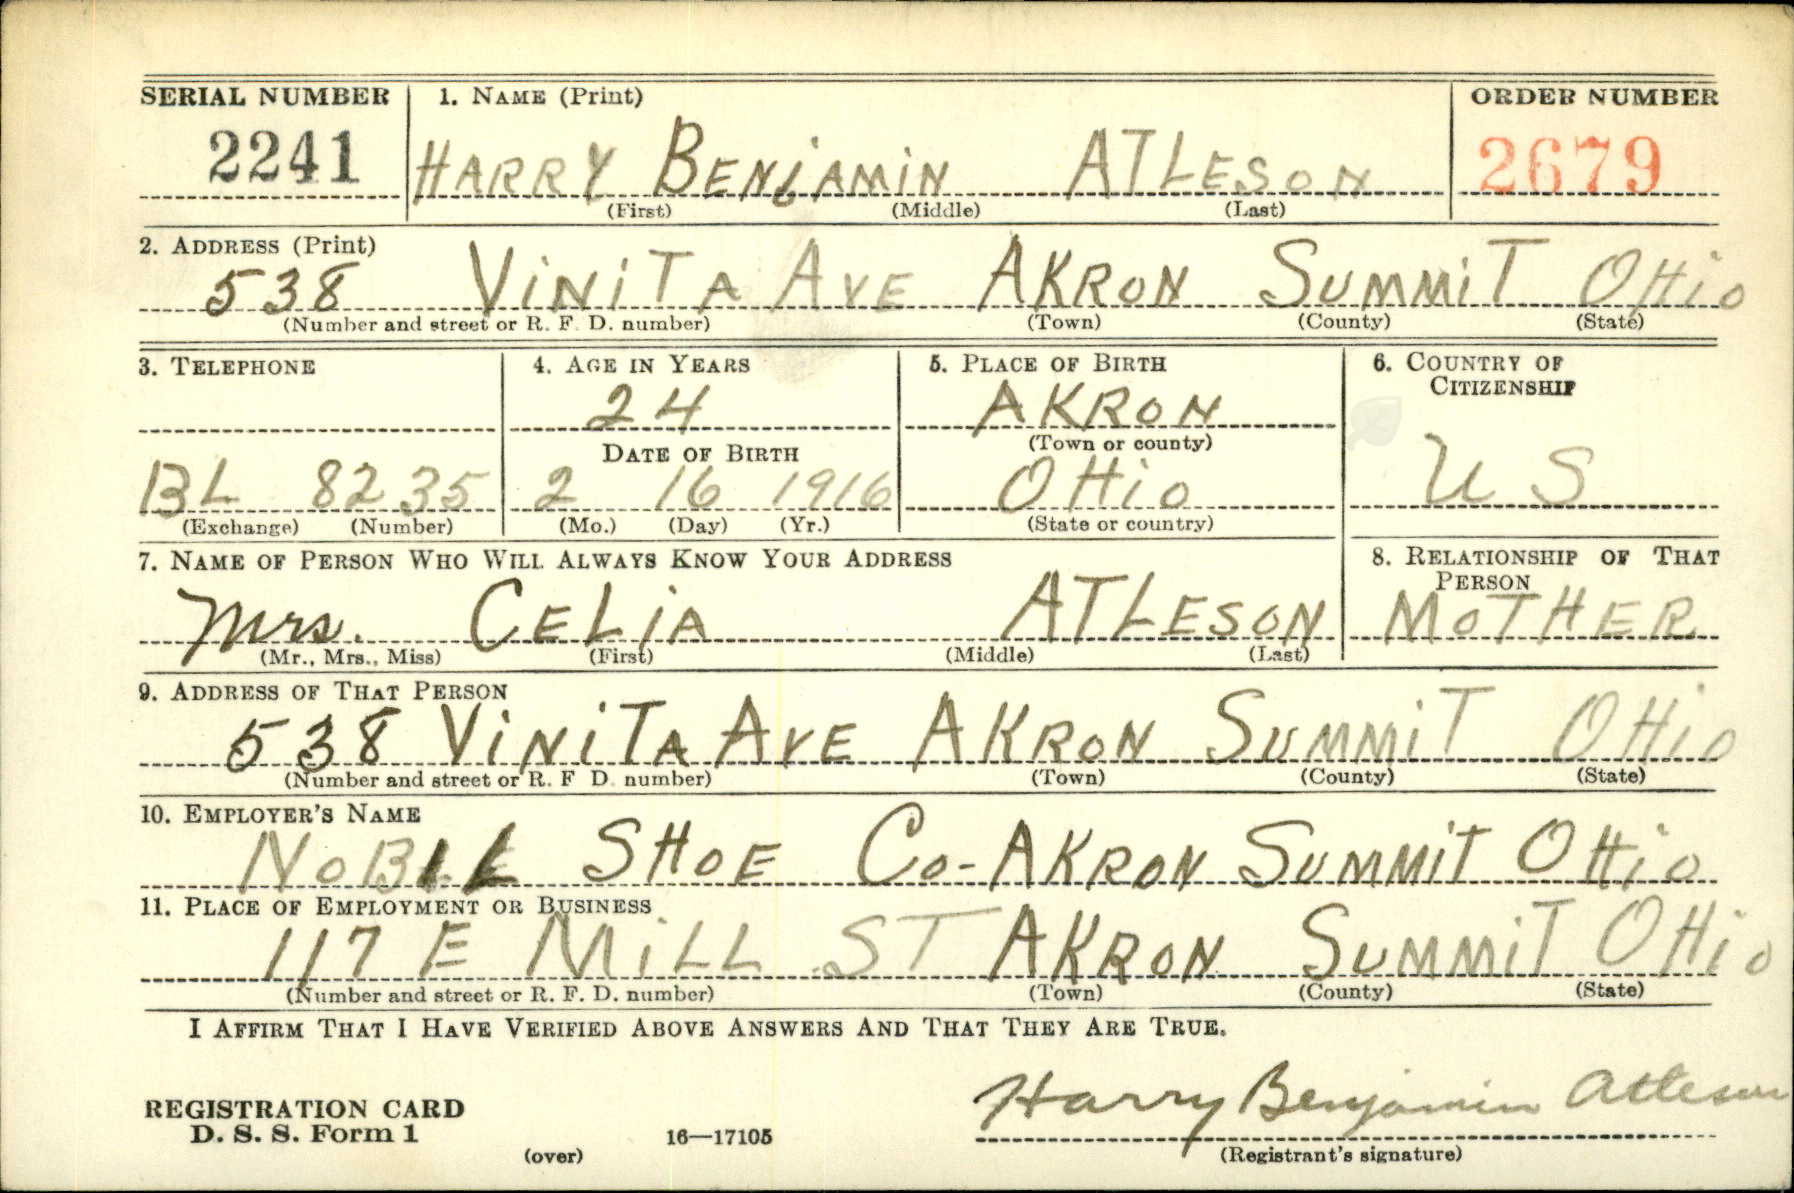 SERIAL NUMBER 1. NAME (Print) ORDER NUMBER
2241 HARRY BENJAMIN ATLESON 2679
(First) (Middle) (Last)
2. ADDRESS (Print)
538 VINITA AVE AKRON SUMMIT OHIO
(Number and street or R. F. D. number) (Town) (County) (State)
3. TELEPHONE 4. AGE IN YEARS 5. PLACE OF BIRTH 6. COUNTRY OF CITIZENSHIP
24 AKRON
DATE OF BIRTH (Town or county)
BL 8235 2 16 1916 OHIO U S
(Exchange) (Number) (Mo.) (Day) (Yr.) (State or country)
7. NAME OF PERSON WHO WILL ALWAYS KNOW YOUR ADDRESS 8. RELATIONSHIP OF THAT PERSON
Mrs. CELIA ATLESON MOTHER
(Mr., Mrs., Miss) (First) (Middle) (Last)
9. ADDRESS OF THAT PERSON
538 VINITA AVE AKRON SUMMIT OHIO
(Number and street or R. F. D. number) (Town) (County) (State)
10. EMPLOYER'S NAME
SHOE CO- AKRON SUMMIT OHIO
11. PLACE OF EMPLOYMENT OR BUSINESS
117 E MILL ST AKRON SUMMIT OHIO
(Number and street or R. F. D. number) (Town) (County) (State)
I AFFIRM THAT I HAVE VERIFIED ABOVE ANSWERS AND THAT THEY ARE TRUE.
Harry Benjamin Atleson
REGISTRATION CARD
D. S. S. Form 1 16—17105
(over) (Registrant's signature)